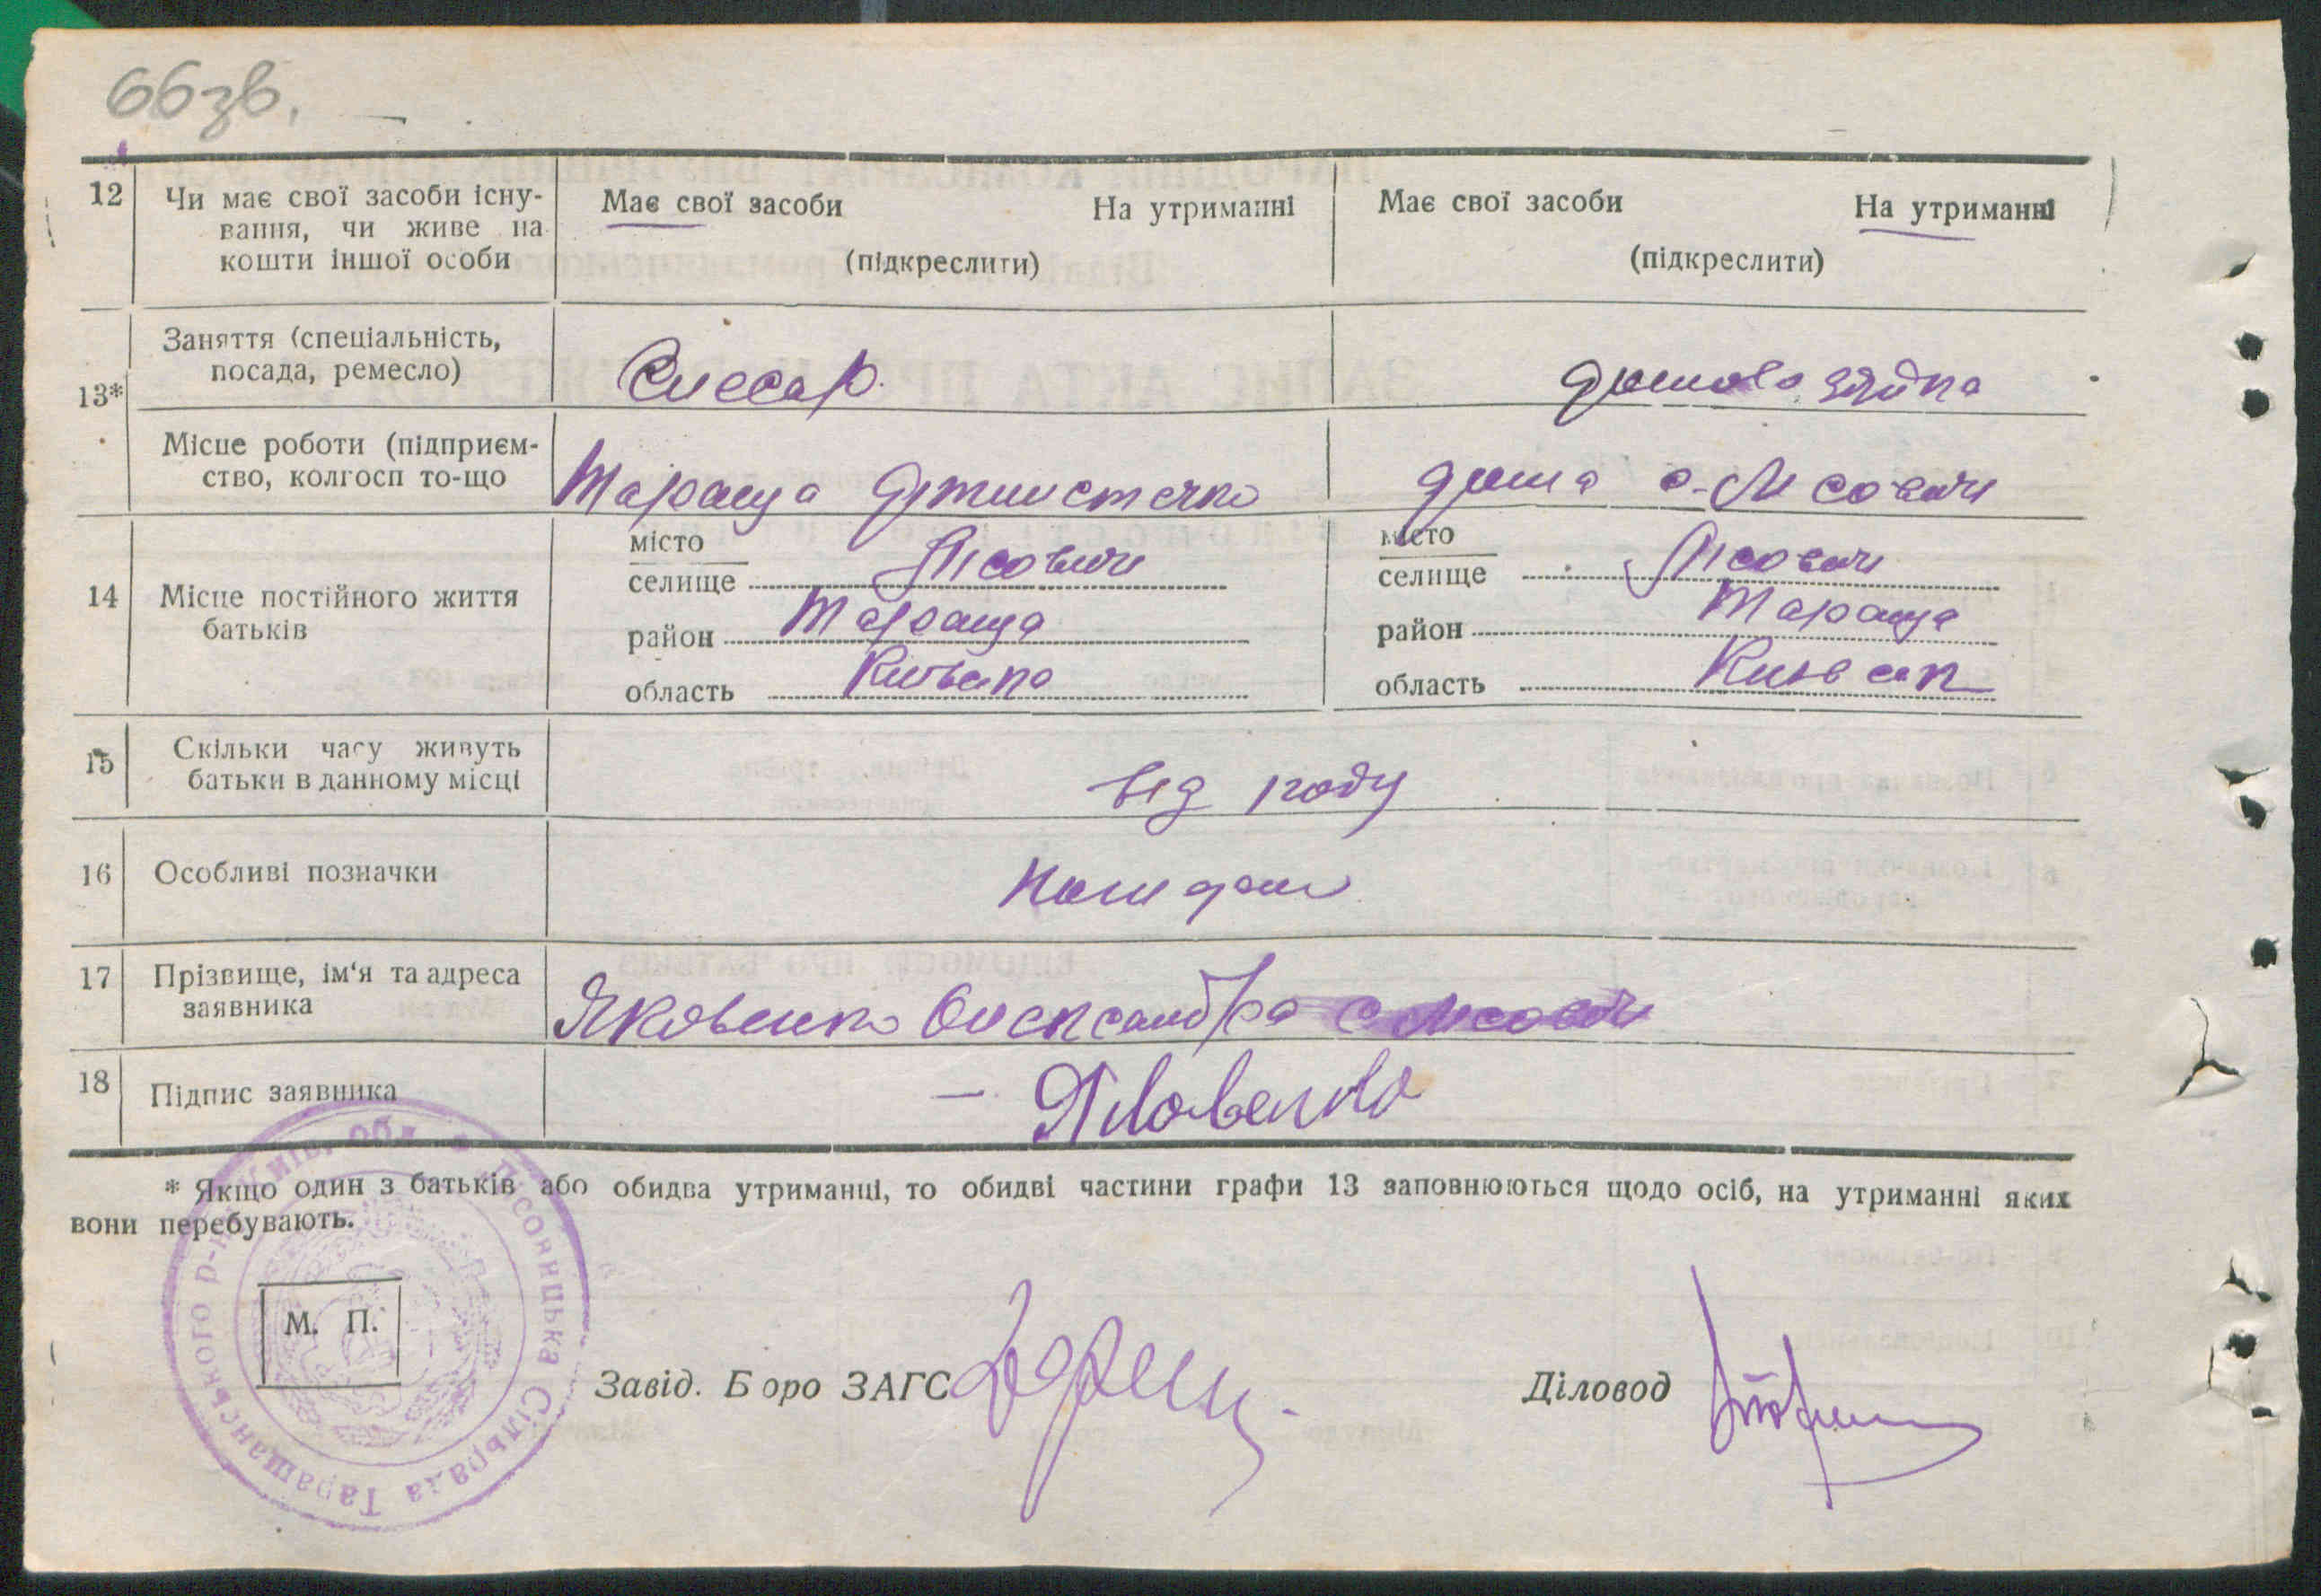 66зв.
12 Чи має свої засоби існу- Має свої засоби На утриманні Має свої засоби На утриманні
вання, чи живе на
кошти іншої особи (підкреслити) (підкреслити)
13* Заняття (спеціальність, Слесар домохозяйка
посада, ремесло)
Місце роботи (підприєм- Тараща дома с. Лісовичі
ство, колгосп то-що
14 Місце постійного життя
батьків
місто
селище Лісовичі
район Тараща
область Київська
місто
селище Лісовичі
район Тараща
область Київськ
15 Скільки часу живуть від роду
батьки в данному місці
16 Особливі позначки
17 Прізвище, ім'я та адреса Яковенко Олександра с Лісовичі
заявника
18 Підпис заявника – Яковенко
* Якщо один з батьків або обидва утриманці, то обидві частини графи 13 заповнюються щодо осіб, на утриманні яких
вони перебувають.
Лісовицька Сільрада Таращанського р-ну Київ. Обл.
М. П.
Завід. Бюро ЗАГС
Діловод